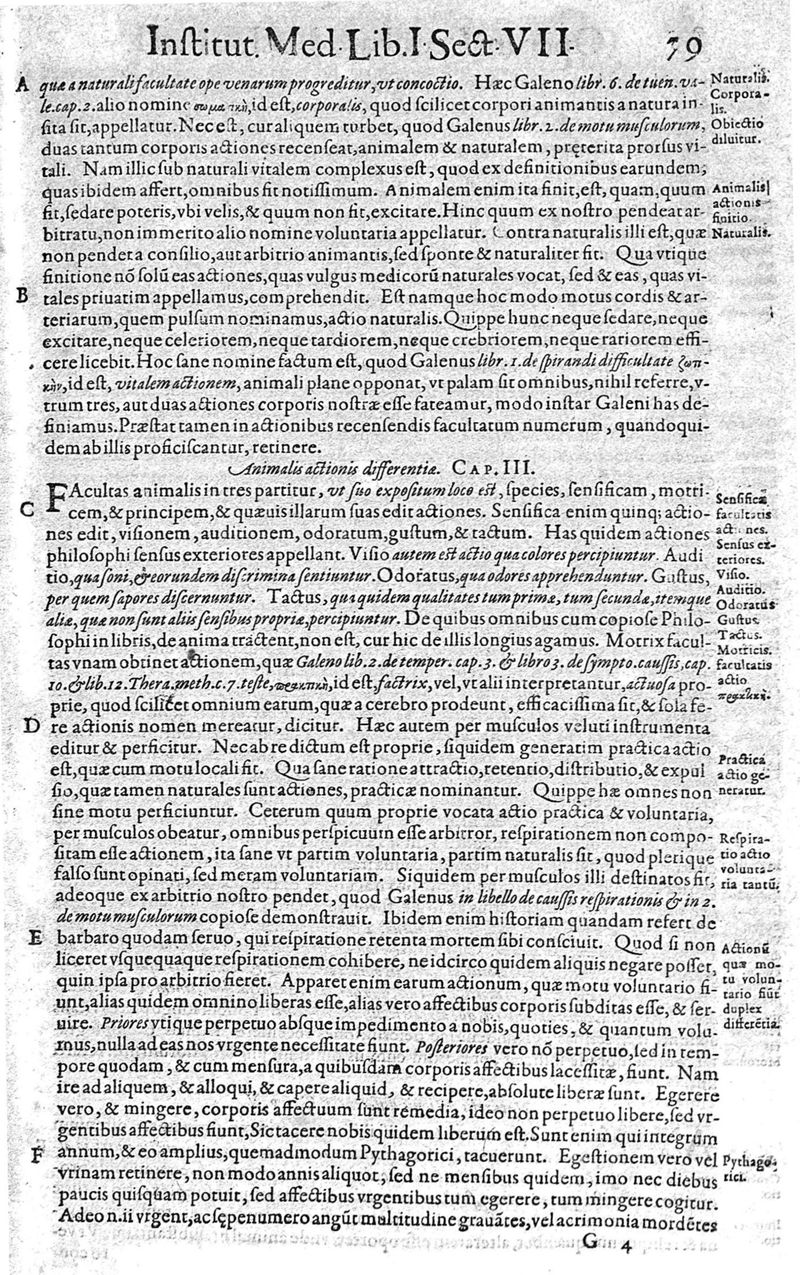 Inſtitut. Med. Lib. I. Sect. VII. 79
A quæ a naturali facultate ope venarum progreditur, vt concoctio. Hæc Galeno libr. 6. de tuen. va-
le. cap. 2. alio nomine σωματικὴ, id est, corporalis, quod ſcilicet corpori animantis a natura in-
ſita ſit, appellatur. Nec eſt, cur aliquem turbet, quod Galenus libr. 2. de motu muſculorum,
duas tantum corporis actiones recenſeat, animalem & naturalem, pręterita prorſus vi-
tali. Nam illic ſub naturali vitalem complexus eſt, quod ex definitionibus earundem,
quas ibidem affert, omnibus fit notiſſimum. Animalem enim ita finit, eſt, quam, quum
fit, ſedare poteris, vbi velis, & quum non fit, excitare. Hinc quum ex noſtro pendeat ar-
bitratu, non immerito alio nomine voluntaria appellatur. Contra naturalis illi eſt, quæ
non pendet a conſilio, aut arbitrio animantis, ſed ſponte & naturaliter fit. Qua vtique
finitione nō ſolū eas actiones, quas vulgus medicorū naturales vocat, ſed & eas, quas vi-
B tales priuatim appellamus, comprehendit. Eſt namque hoc modo motus cordis & ar-
teriarum, quem pulſum nominamus, actio naturalis. Quippe hunc neque ſedare, neque
excitare, neque celeriorem, neque tardiorem, neque crebriorem, neque rariorem effi-
cere licebit. Hoc ſane nomine factum eſt, quod Galenus libr. 1. de ſpirandi difficultate ζωτι-
κὴν, id est, vitalem actionem, animali plane opponat, vt palam ſit omnibus, nihil referre, v-
trum tres, aut duas actiones corporis noſtræ eſſe fateamur, modo inſtar Galeni has de-
finiamus. Præſtat tamen in actionibus recenſendis facultatum numerum, quandoqui-
dem ab illis proficiſcantur, retinere.
Naturalis.
Corpora-
lis.
Obiectio
diluitur.
Animalis
actionis
finitio.
Naturalis.
Animalis actionis differentiæ. CAP. III.
FAcultas animalis in tres partitur, vt ſuo expoſitum loco eſt, ſpecies, ſenſificam, motri-
C cem, & principem, & quæuis illarum ſuas edit actiones. Senſifica enim quinq; actio-
nes edit, viſionem, auditionem, odoratum, guſtum, & tactum. Has quidem actiones
philoſophi ſenſus exteriores appellant. Viſio autem eſt actio qua colores percipiuntur. Audi
tio, qua ſoni, & eorundem diſcrimina ſentiuntur. Odoratus, qua odores apprehenduntur. Guſtus,
per quem ſapores diſcernuntur. Tactus, qua quidem qualitates tum primæ, tum ſecundæ, itemque
aliæ, quæ non ſunt aliis ſenſibus propriæ, percipiuntur. De quibus omnibus cum copioſe Philo-
ſophi in libris, de anima tractent, non eſt, cur hic de illis longius agamus. Motrix facul-
tas vnam obtinet actionem, quæ Galeno lib. 2. de temper. cap. 3. & libro 3. de ſympto. cauſſis, cap.
10. & lib. 12. Thera. meth. c. 7. teſte, πρακτικὴ, id est, factrix, vel, vt alii interpretantur, actuoſa pro-
prie, quod ſcilicet omnium earum, quæ a cerebro prodeunt, efficaciſſima ſit, & ſola fe-
D re actionis nomen mereatur, dicitur. Hæc autem per muſculos veluti inſtrumenta
editur & perficitur. Nec ab re dictum eſt proprie, ſiquidem generatim practica actio
eſt, quæ cum motu locali fit. Qua ſane ratione attractio, retentio, diſtributio, & expul
ſio, quæ tamen naturales ſunt actiones, practicæ nominantur. Quippe hæ omnes non
ſine motu perficiuntur. Ceterum quum proprie vocata actio practica & voluntaria,
per muſculos obeatur, omnibus perſpicuum eſſe arbitror, reſpirationem non compo-
ſitam eſſe actionem, ita ſane vt partim voluntaria, partim naturalis ſit, quod plerique
falſo ſunt opinati, ſed meram voluntariam. Siquidem per muſculos illi deſtinatos fit,
adeoque ex arbitrio noſtro pendet, quod Galenus in libello de cauſſis reſpirationis & in 2.
de motu muſculorum copioſe demonſtrauit. Ibidem enim hiſtoriam quandam refert de
E barbaro quodam ſeruo, qui reſpiratione retenta mortem ſibi conſciuit. Quod ſi non
liceret vſquequaque reſpirationem cohibere, ne idcirco quidem aliquis negare poſſet,
quin ipſa pro arbitrio fieret. Apparet enim earum actionum, quæ motu voluntario fi-
unt, alias quidem omnino liberas eſſe, alias vero affectibus corporis ſubditas eſſe, & ſer-
uire. Priores vtique perpetuo absque impedimento a nobis, quoties, & quantum volu-
mus, nulla ad eas nos vrgente neceſſitate fiunt. Poſteriores vero nō perpetuo, ſed in tem-
pore quodam, & cum menſura, a quibuſdam corporis affectibus laceſſitæ, fiunt. Nam
ire ad aliquem, & alloqui, & capere aliquid, & recipere, abſolute liberæ ſunt. Egerere
vero, & mingere, corporis affectuum ſunt remedia, ideo non perpetuo libere, ſed vr-
gentibus affectibus fiunt, Sic tacere nobis quidem liberum eſt. Sunt enim qui integrum
F annum, & eo amplius, quemadmodum Pythagorici, tacuerunt. Egeſtionem vero vel
vrinam retinere, non modo annis aliquot, ſed ne menſibus quidem, imo nec diebus
paucis quiſquam potuit, ſed affectibus vrgentibus tum egerere, tum mingere cogitur.
Adeo n. ii vrgent, ac ſępenumero angūt multitudine grauātes, vel acrimonia mordētes
Senſificæ
facultatis
actiones.
Senſus ex-
teriores.
Viſio.
Auditio.
Odoratus
Guſtus.
Tactus.
Motricis
facultatis
actio
πρακτική.
Practica
actio ge-
neratur.
Reſpira-
tio actio
volunta-
ria tantū.
Actionū
quæ mo-
tu volun-
tario fiūt
duplex
differētia.
Pythago-
rici.
G 4